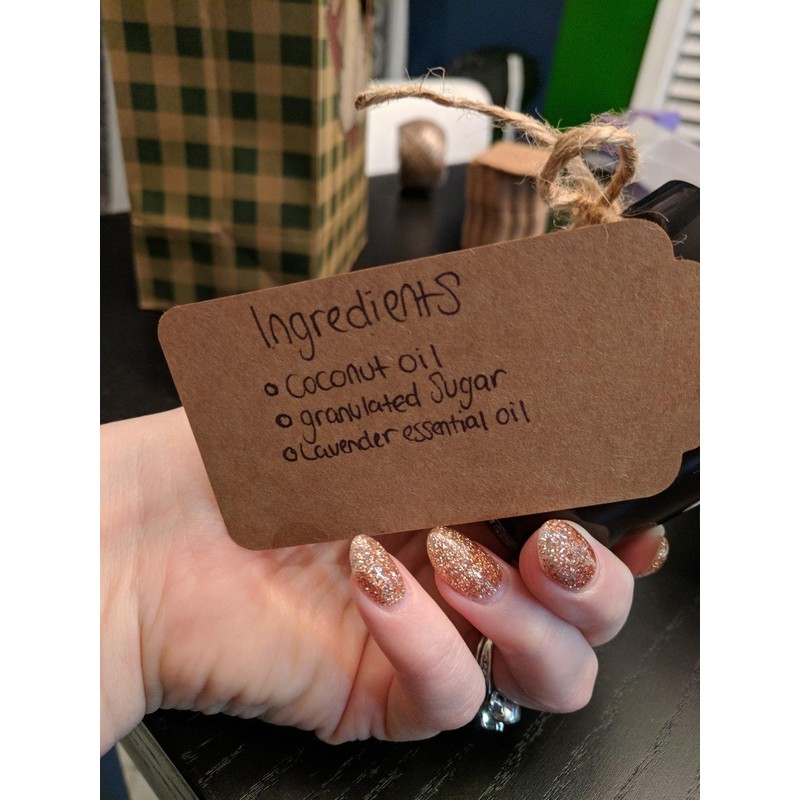 Ingredients
o Coconut oil
o granulated Sugar
o Lavender essential oil